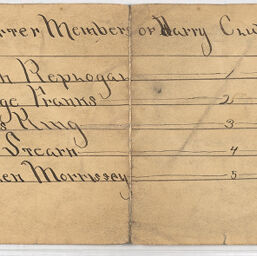 rter Members of Harry Clu
n Replogal 1
ge Franks 2
s King 3
Stearn 4
en Morrissey 5